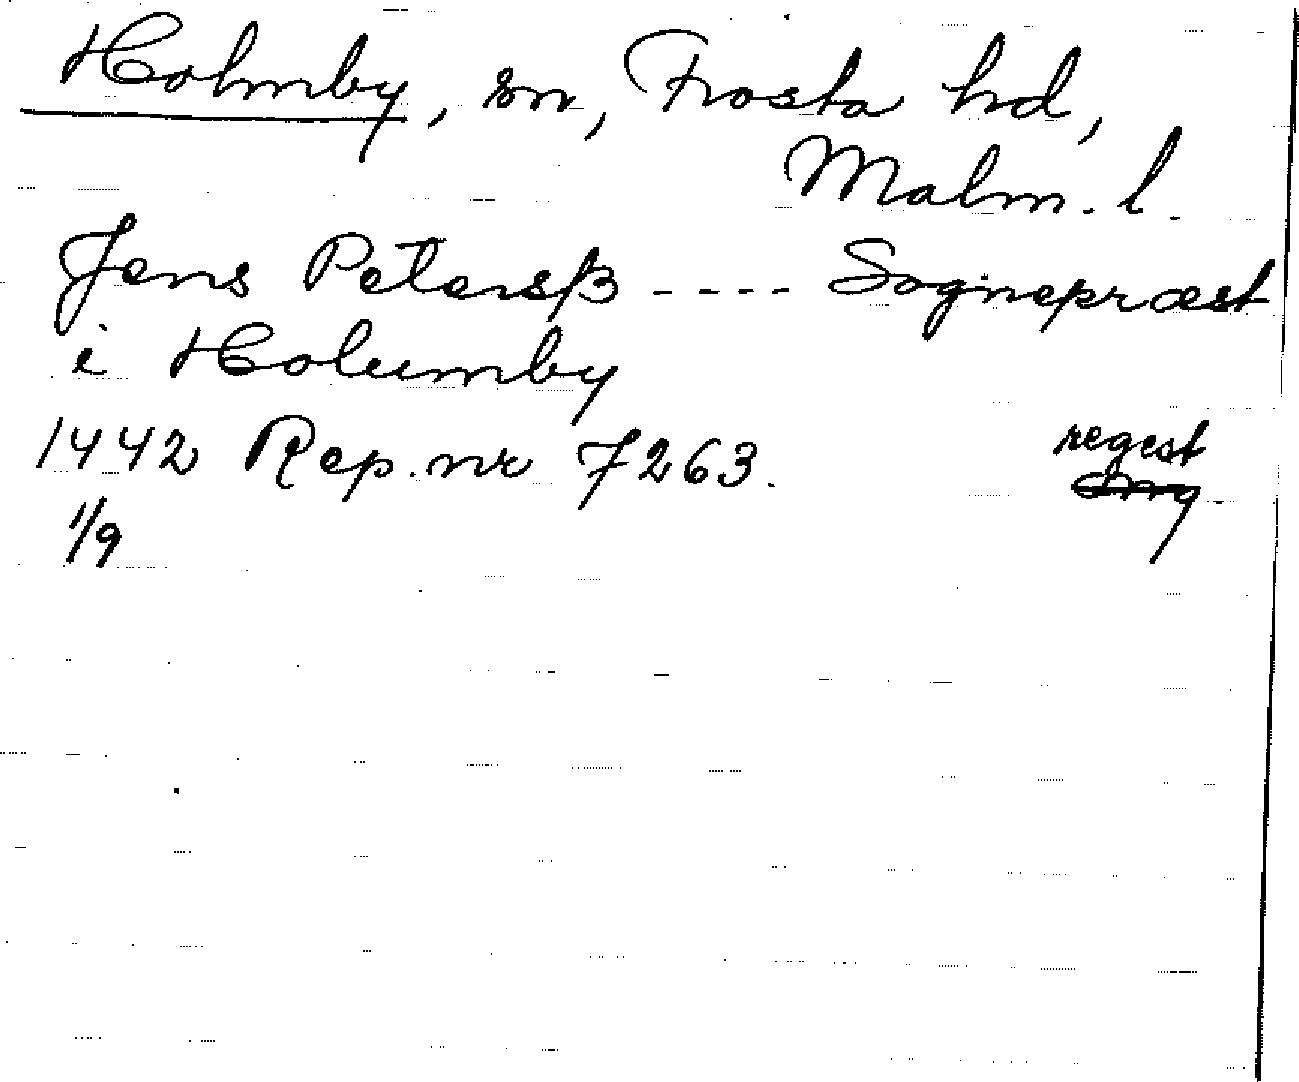 Holmby, sn, Frosta hd,
Malm. l.
Jens Petersß ---- Sognepræst
i Holumby
1442 Rep. nr 7263. regest
1/9